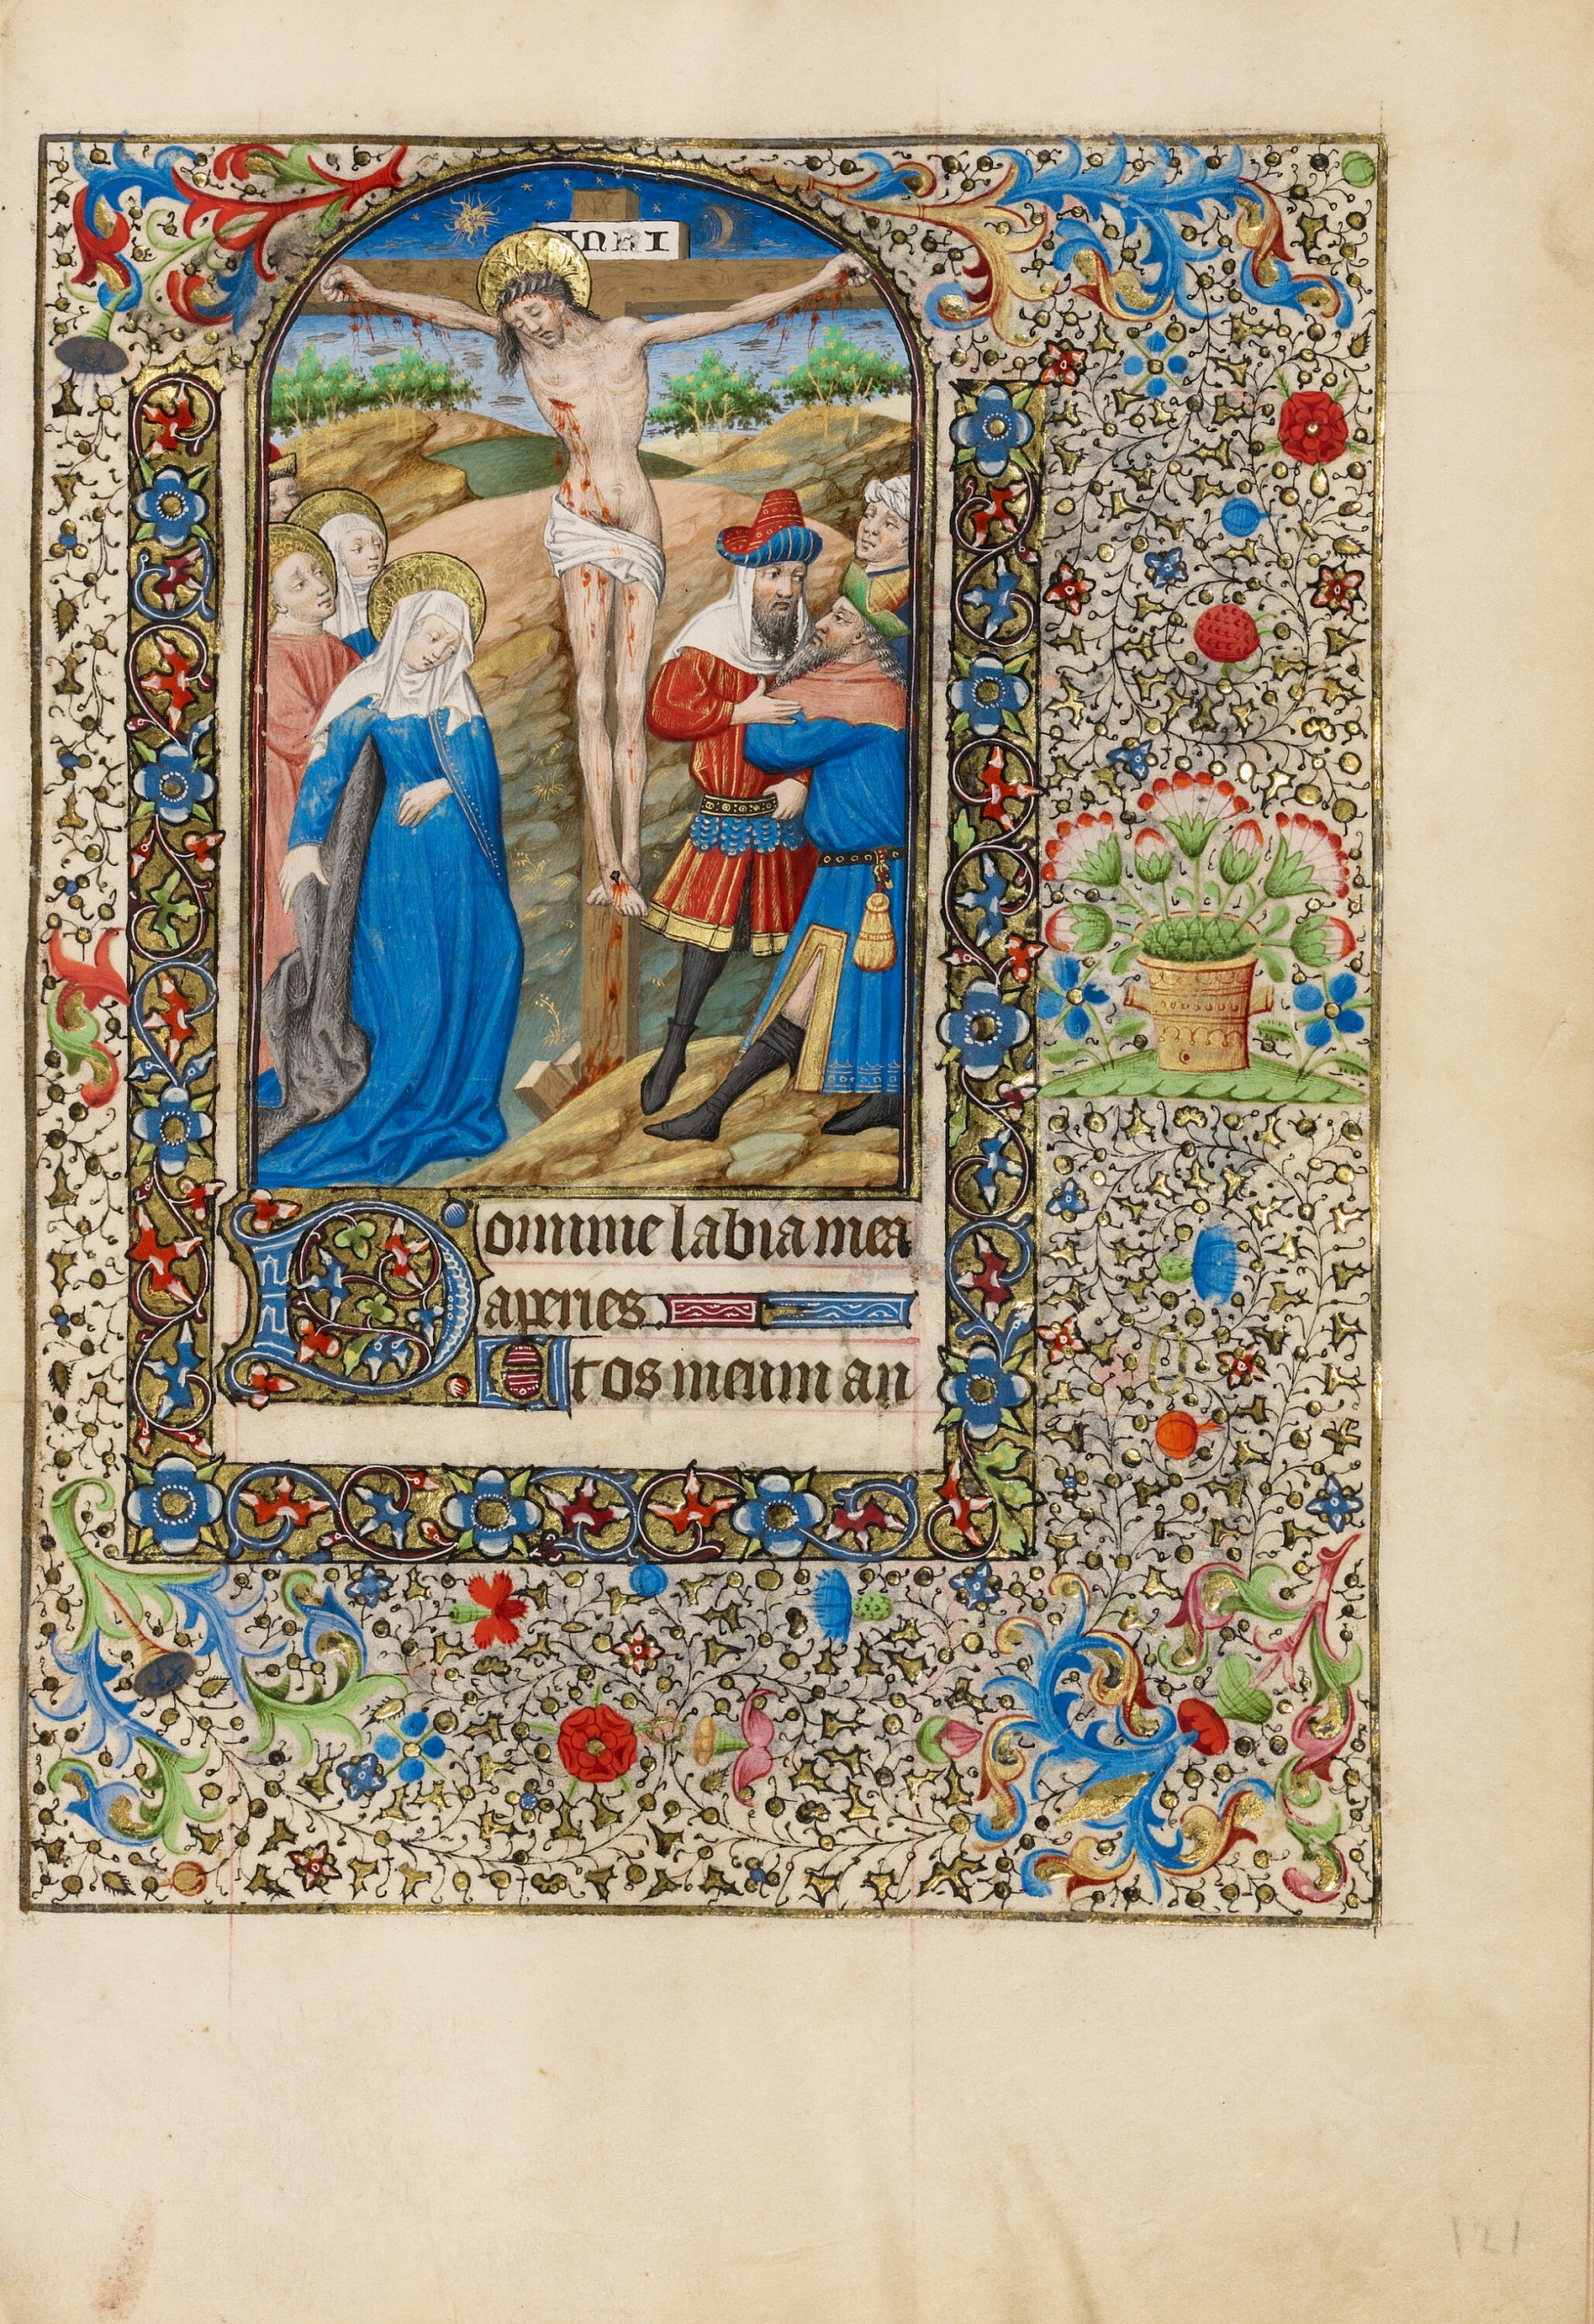 INRI
Domine labia mea
aperies
Et os meum an
121